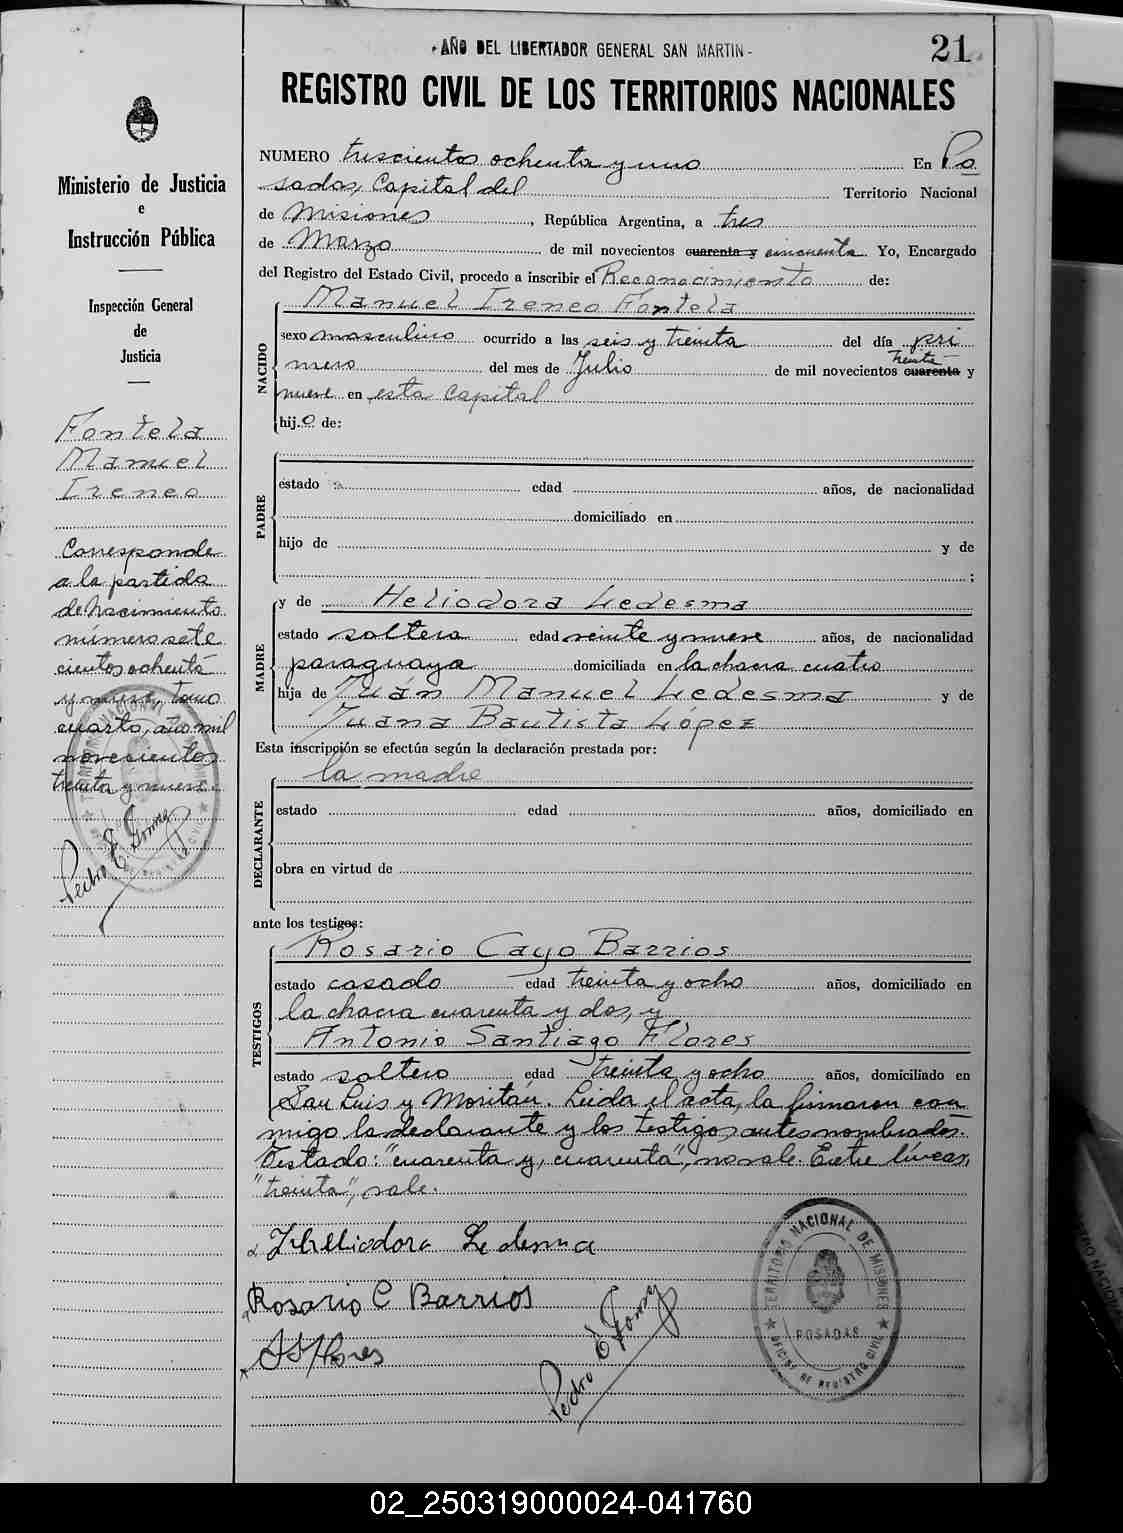 - AÑO DEL LIBERTADOR GENERAL SAN MARTIN -
21
REGISTRO CIVIL DE LOS TERRITORIOS NACIONALES
Ministerio de Justicia
e
Instrucción Pública
Inspección General
de
Justicia
Fontela
Manuel
Ireneo
Corresponde
a la partida
de Nacimiento
número sete
cientos ochenta
y nueve, tomo
cuarto, año mil
novecientos
treinta y nueve.
Pedro E Gomez
NUMERO trescientos ochenta y uno En Po
sadas, Capital del Territorio Nacional
de Misiones, República Argentina, a tres
de Marzo de mil novecientos cuarenta y cincuenta Yo, Encargado
del Registro del Estado Civil, procedo a inscribir el Reconocimiento de:
NACIDO
Manuel Ireneo Fontela
sexo masculino ocurrido a las seis y treinta del día pri
mero del mes de Julio de mil novecientos cuarenta treinta y
nueve en esta Capital
hijo de:
PADRE
estado edad años, de nacionalidad
domiciliado en
hijo de y de
;
MADRE
y de Heliodora Ledesma
estado soltera edad veinte y nueve años, de nacionalidad
paraguaya domiciliada en la chacra cuatro
hija de Juán Manuel Ledesma y de
Juana Bautista López
Esta inscripción se efectúa según la declaración prestada por:
DECLARANTE
la madre
estado edad años, domiciliado en
obra en virtud de
ante los testigos:
TESTIGOS
Rosario Cayo Barrios
estado casado edad treinta y ocho años, domiciliado en
la chacra cuarenta y dos, y
Antonio Santiago Flores
estado soltero edad treinta y ocho años, domiciliado en
San Luis y Moritán. Leida el acta, la firmaron con
migo la declarante y los testigos antes nombrados.
Testado: "cuarenta y, cuarenta", no vale. Entre líneas,
"treinta", vale.
Rosario C Barrios
Flores
Pedro E Gomez
TERRITORIO NACIONAL DE MISIONES
POSADAS
OFICINA DE REGISTRO CIVIL
02_250319000024-041760